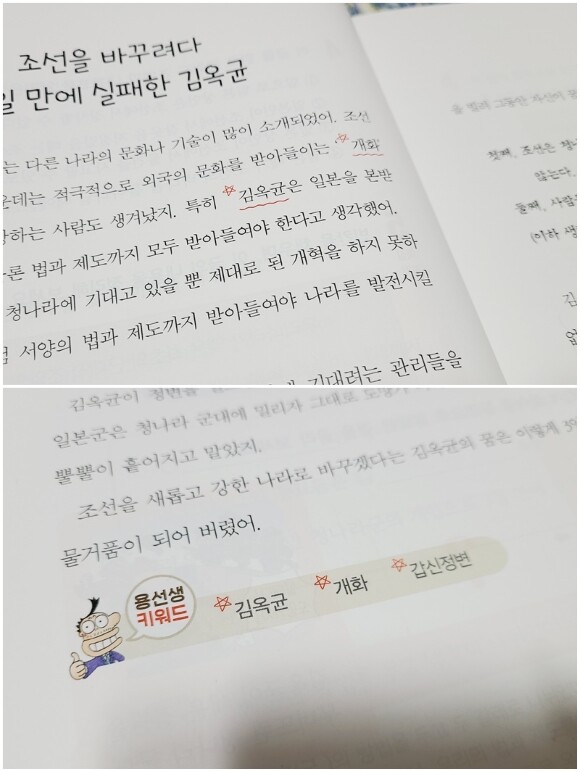 조선을 바꾸려다
일 만에 실패한 김옥균
는 다른 나라의 문화나 기술이 많이 소개되었어. 조선
운데는 적극적으로 외국의 문화를 받아들이는 개화
하는 사람도 생겨났지. 특히 김옥균은 일본을 본받
론 법과 제도까지 모두 받아들여야 한다고 생각했어.
청나라에 기대고 있을 뿐 제대로 된 개혁을 하지 못하
서양의 법과 제도까지 받아들여야 나라를 발전시킬
기대려는 관리들을
첫째, 조선은 청나
않는다.
둘째, 사람
(이하 생
김
없
김옥균이 정변을
일본군은 청나라 군대에 밀리자 그대로
뿔뿔이 흩어지고 말았지.
조선을 새롭고 강한 나라로 바꾸겠다는 김옥균의 꿈은 이렇게
물거품이 되어 버렸어.
용선생
키워드
김옥균 개화 갑신정변